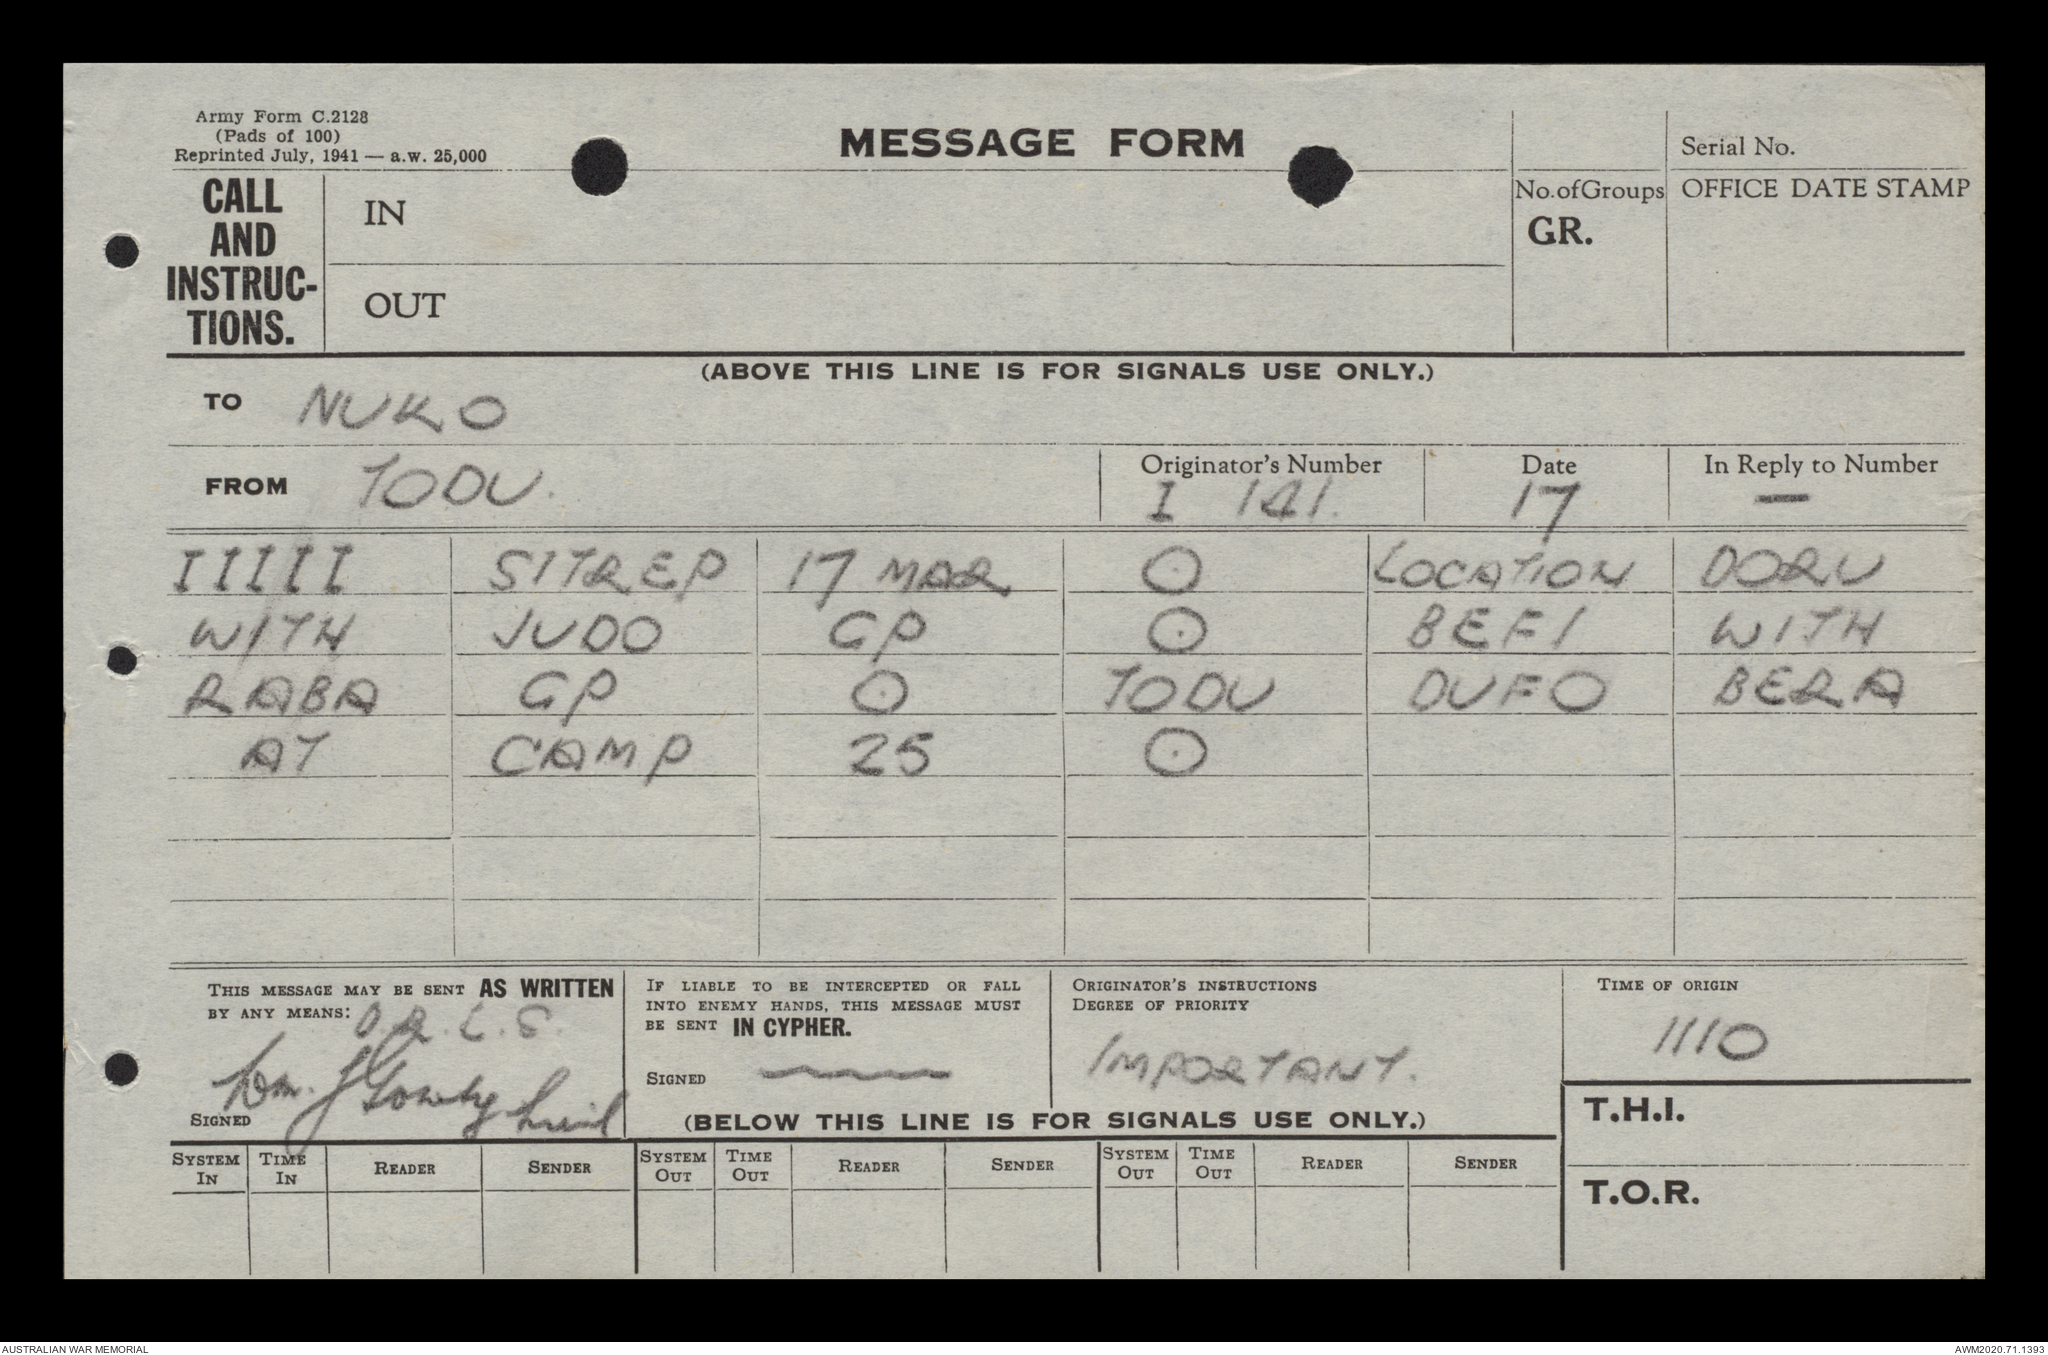 Army Form C.2128
(Pads of 100)
Reprinted July, 1941 — a.w. 25,000
MESSAGE FORM
Serial No.
CALL
AND
INSTRUC-
TIONS.
IN
OUT
No. of Groups
GR.
OFFICE DATE STAMP
(ABOVE THIS LINE IS FOR SIGNALS USE ONLY.)
TO NUKO
FROM TODU.
Originator's Number
I 141.
Date
17
In Reply to Number
—
IIIII SITREP 17 MAR ⊙ LOCATION DORU
WITH JUDO GP ⊙ BEFI WITH
RABA GP ⊙ TODU DUFO BERA
AT CAMP 25 ⊙
THIS MESSAGE MAY BE SENT AS WRITTEN
BY ANY MEANS: D.R.L.S.
SIGNED
IF LIABLE TO BE INTERCEPTED OR FALL
INTO ENEMY HANDS, THIS MESSAGE MUST
BE SENT IN CYPHER.
SIGNED
ORIGINATOR'S INSTRUCTIONS
DEGREE OF PRIORITY
IMPORTANT.
TIME OF ORIGIN
1110
(BELOW THIS LINE IS FOR SIGNALS USE ONLY.)
T.H.I.
T.O.R.
SYSTEM IN TIME IN READER SENDER SYSTEM OUT TIME OUT READER SENDER SYSTEM OUT TIME OUT READER SENDER
AUSTRALIAN WAR MEMORIAL
AWM2020.71.1393